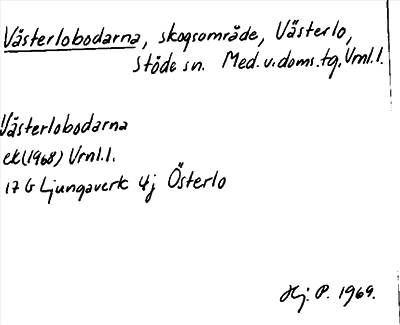 Västerlobodarna, skogsområde, Västerlo,
Stöde sn. Med.v.doms.tg. Vrnl.l.
Västerlobodarna
ek(1968) Vrnl.l.
17 G Ljungaverk 4j Österlo
Hj. P. 1969.